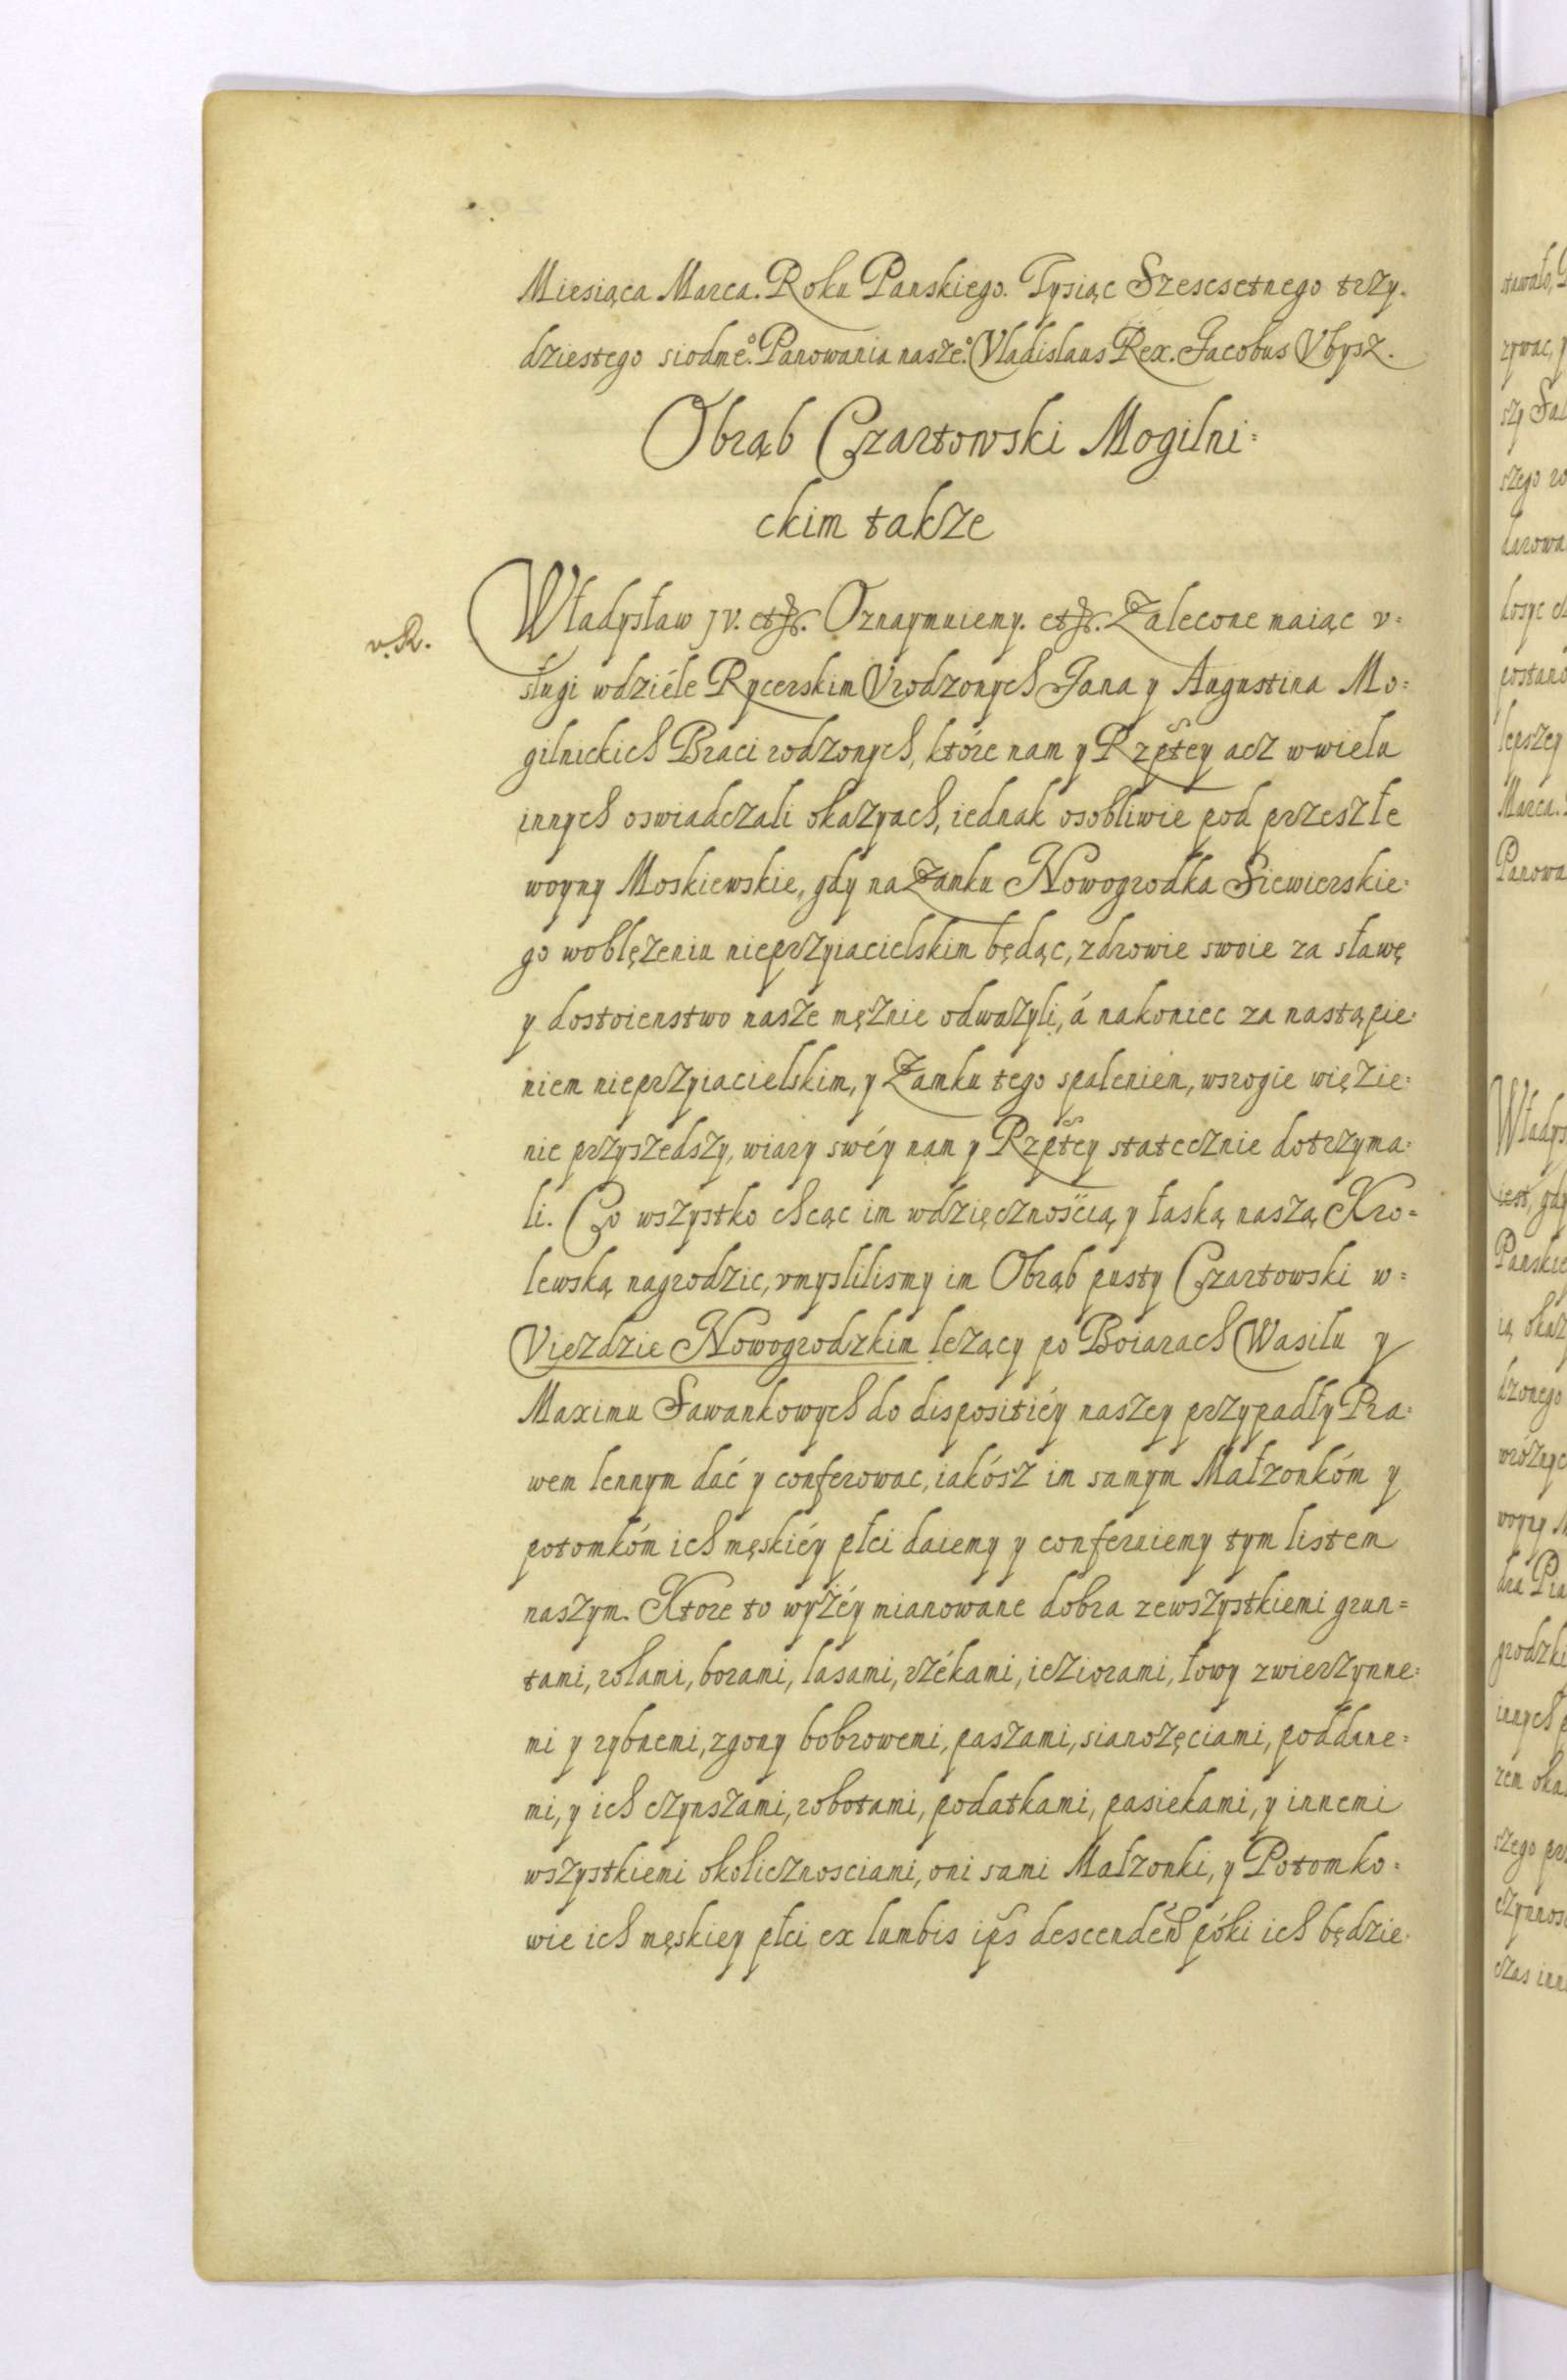 Miesiąca Marca. Roku Panskiego. Tysiąc Szescsetnego trzy-
dziestego siodme͒. Panowania nasze͒. Vladislaus Rex. Jacobus Vbysz.
Obrąb Czartowski Mogilni=
ckim takze
v. R.
Władysław JV. etc. Oznaymuiemy. etc. Zalecone maiąc v=
sługi wdziéle Rycerskim Vrodzonych Jana y Augustina Mo=
gilnickich Braci rodzonych, które nam y Rzpłtey acz w wielu
innych oswiadczali okazyach, iednak osobliwie pod przeszłe
woyny Moskiewskie, gdy na Zamku Nowogrodka Siewierskie-
go woblężeniu nieprzyiacielskim będąc, zdrowie swoie za sławę
y dostoienstwo nasze mężnie odważyli, á nakoniec za nastąpie-
niem nieprzyiacielskim, y Zamku tego spaleniem, wsrogie więzie=
nie przyszedszy, wiary swéy nam y Rzpłtey statecznie dotrzyma=
li. Co wszystko chcąc im wdzięcznością y łaską naszą Kro=
lewską nagrodzic, vmyslilismy im Obrąb pusty Czartowski w=
Viezdzie Nowogrodzkim leżący po Boiarach Wasilu y
Maximu Sawankowych do dispositiéy naszey przypadły Pra=
wem lennym dać y conferowac, iakósz im samym Małzonkóm y
potomkóm ich męskiéy płci daiemy y conferuiemy tym listem
naszym. Ktore to wyżéy mianowane dobra zewszystkiemi grun=
tami, rolami, borami, lasami, rzékami, ieziorami, łowy zwierzynne=
mi y rybnemi, zgony bobrowemi, paszami, sianożęciami, poddane=
mi, y ich czynszami, robotami, podatkami, pasiekami, y innemi
wszystkiemi okolicznosciami, oni sami Małzonki, y Potomko=
wie ich męskiey płci ex lumbis ips descendeñ póki ich będzie